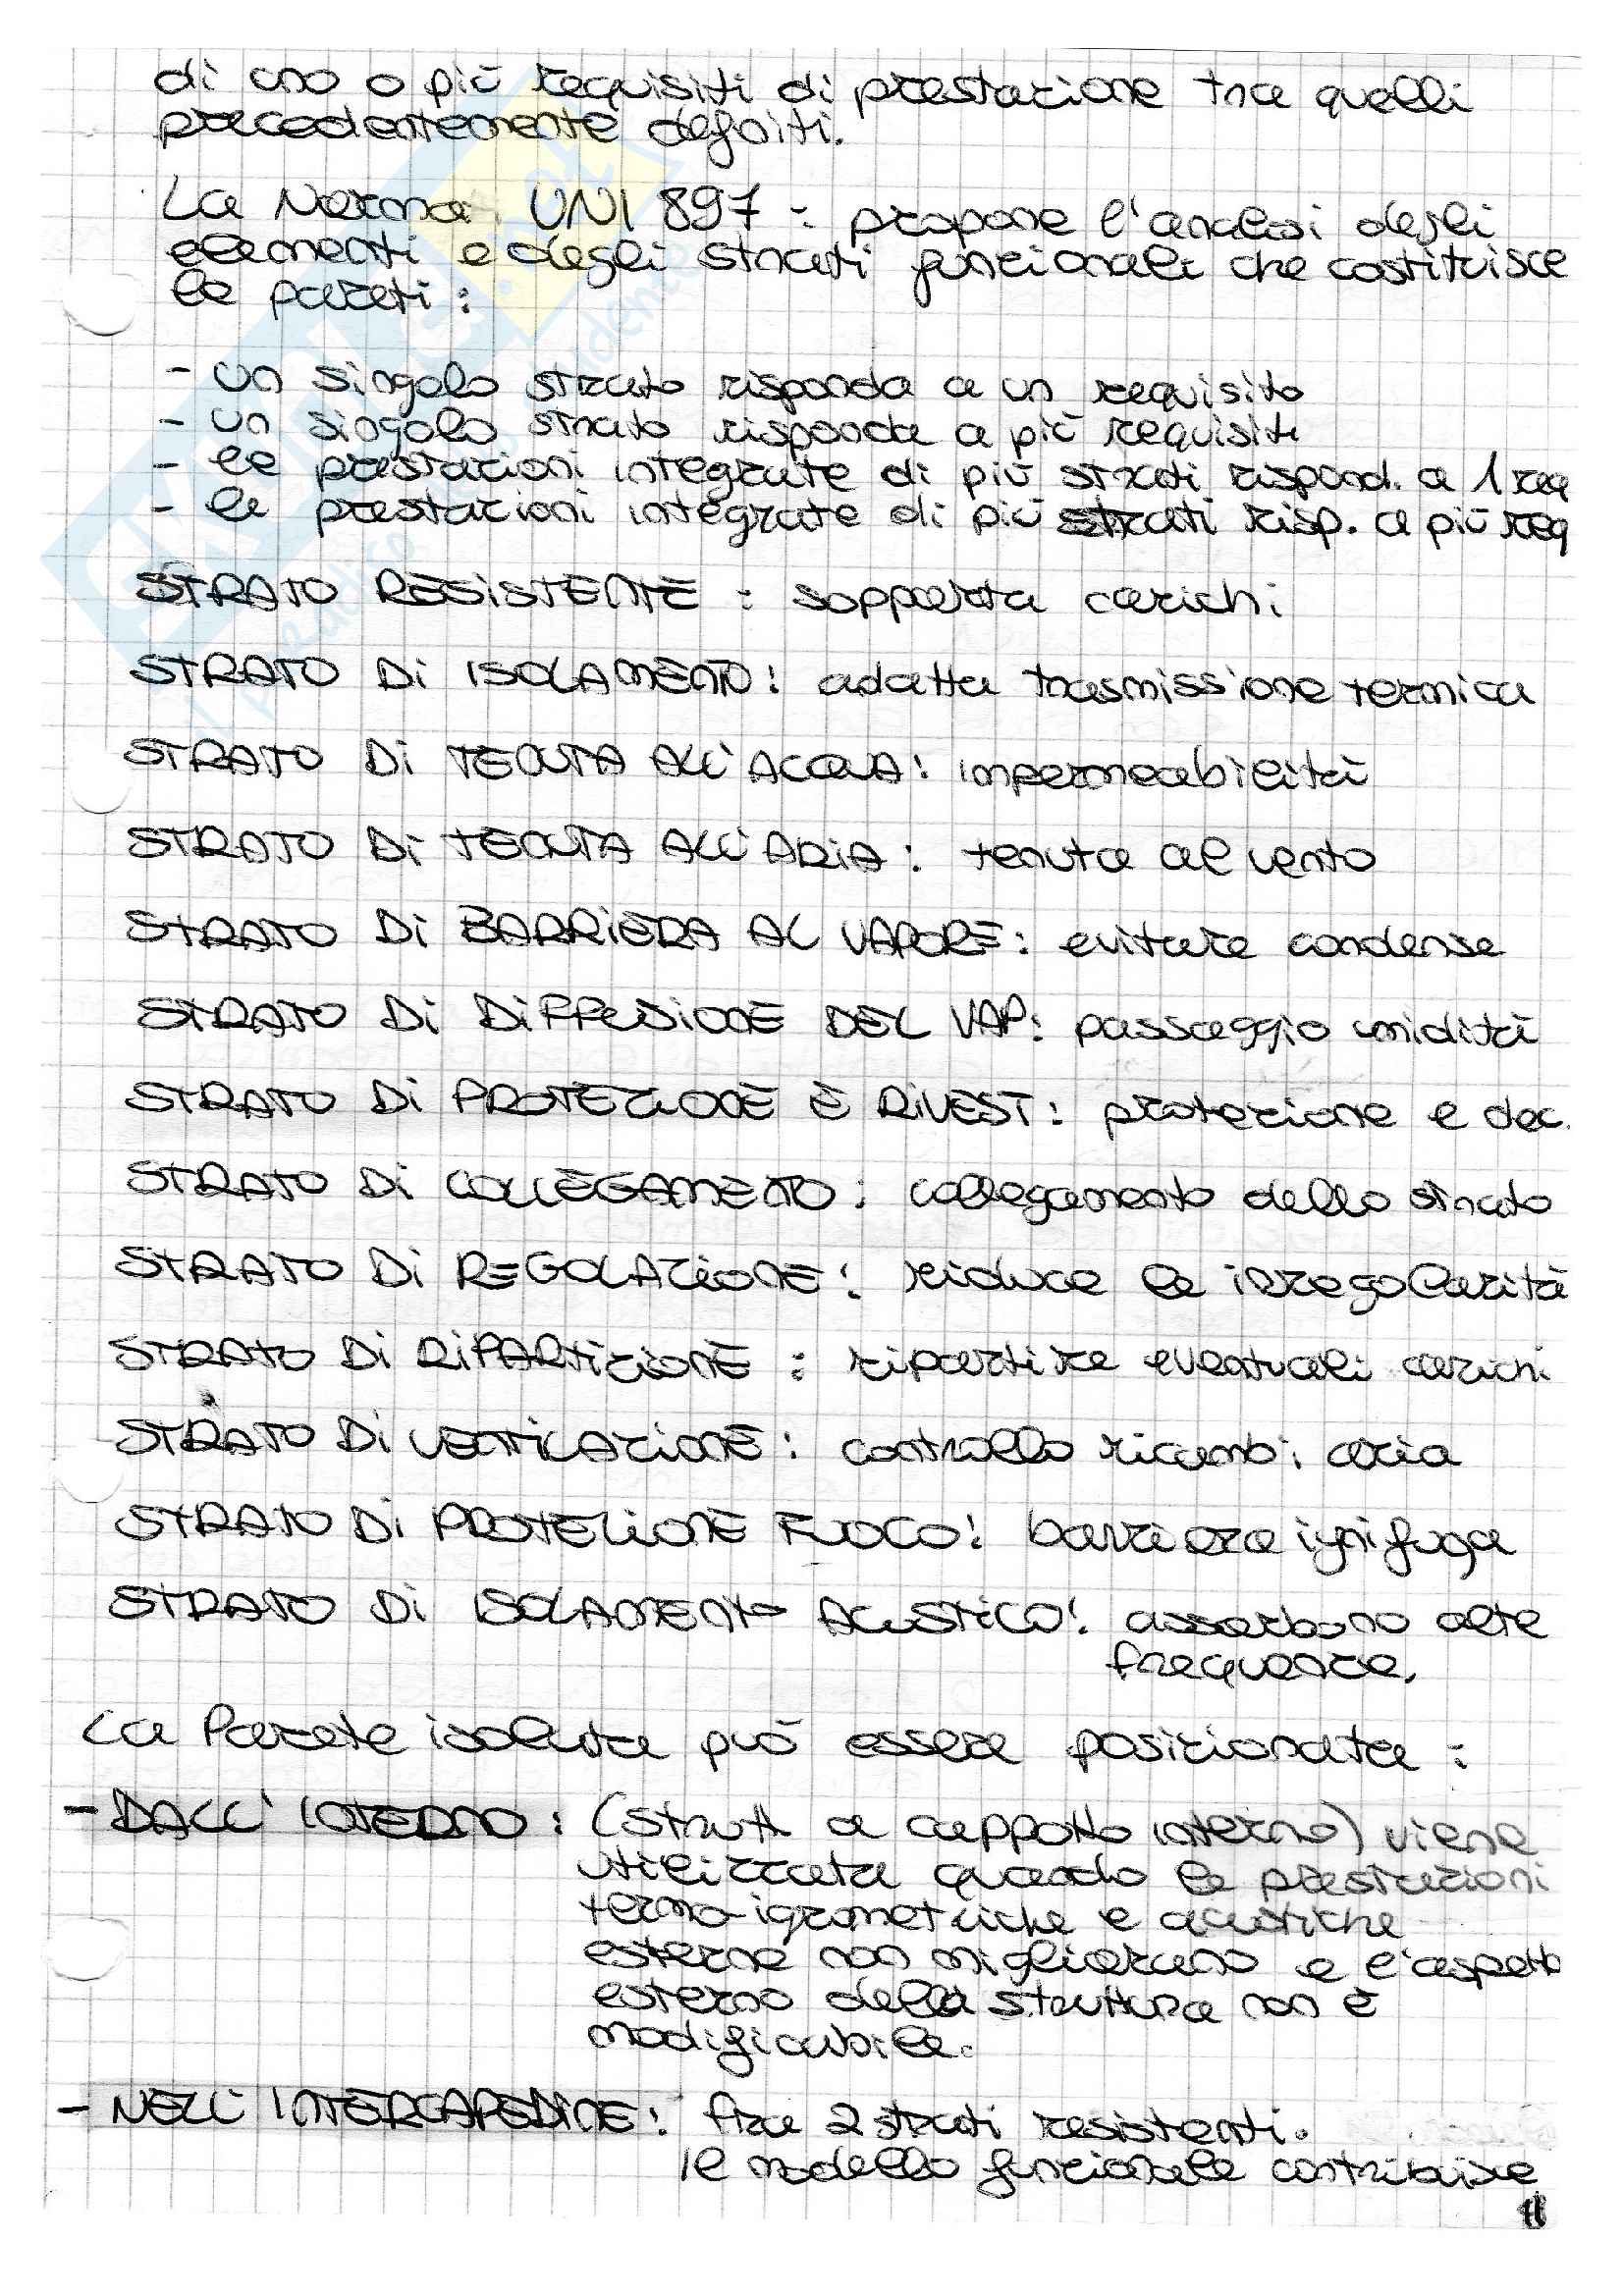 di uno o più requisiti di prestazione tra quelli
precedentemente definiti.
La Norma UNI 897 : propone l'analisi degli
elementi e degli strati funzionali che costituisce
le pareti :
- un singolo strato risponda a un requisito
- un singolo strato risponda a più requisiti
- le prestazioni integrate di più strati rispond. a 1 req
- le prestazioni integrate di più strati risp. a più req
STRATO RESISTENTE : sopporta carichi
STRATO Di ISOLAMENTO : adatta trasmissione termica
STRATO Di TENUTA ALL'ACQUA : impermeabilità
STRATO Di TENUTA ALL'ARIA : tenuta al vento
STRATO Di BARRIERA AL VAPORE : evitare condense
STRATO Di DIFFUSIONE DEL VAP : passaggio umidità
STRATO Di PROTEZIONE E RIVEST : protezione e dec.
STRATO Di COLLEGAMENTO : collegamento dello strato
STRATO Di REGOLAZIONE : riduce le irregolarità
STRATO Di RIPARTIZIONE : ripartire eventuali carichi
STRATO Di VENTILAZIONE : controllo ricambi aria
STRATO Di PROTEZIONE FUOCO : barriera ignifuga
STRATO Di ISOLAMENTO ACUSTICO : assorbono alte
frequenze.
La Parete isolata può essere posizionata :
- DALL' INTERNO : (strutt a cappotto interno) viene
utilizzata quando le prestazioni
termo-igrometriche e acustiche
esterne non migliorano e l'aspetto
esterno della struttura non è
modificabile.
- NELL' INTERCAPEDINE : fra 2 strati resistenti.
Il modello funzionale contribuisce